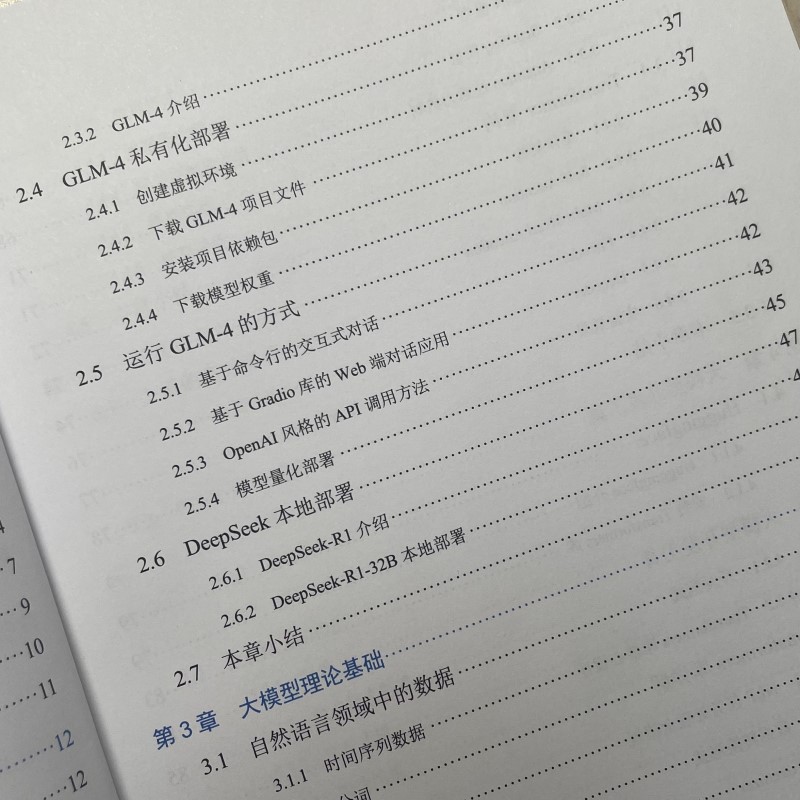 2.3.2 GLM-4 介绍
2.4 GLM-4 私有化部署 37
2.4.1 创建虚拟环境 37
2.4.2 下载 GLM-4 项目文件 39
2.4.3 安装项目依赖包 40
2.4.4 下载模型权重 41
2.5 运行 GLM-4 的方式 42
2.5.1 基于命令行的交互式对话 42
2.5.2 基于 Gradio 库的 Web 端对话应用 43
2.5.3 OpenAI 风格的 API 调用方法 45
2.5.4 模型量化部署 47
2.6 DeepSeek 本地部署
2.6.1 DeepSeek-R1 介绍
2.6.2 DeepSeek-R1-32B 本地部署
2.7 本章小结
第 3 章 大模型理论基础
3.1 自然语言领域中的数据
3.1.1 时间序列数据
分词
7
9
10
11
12
12